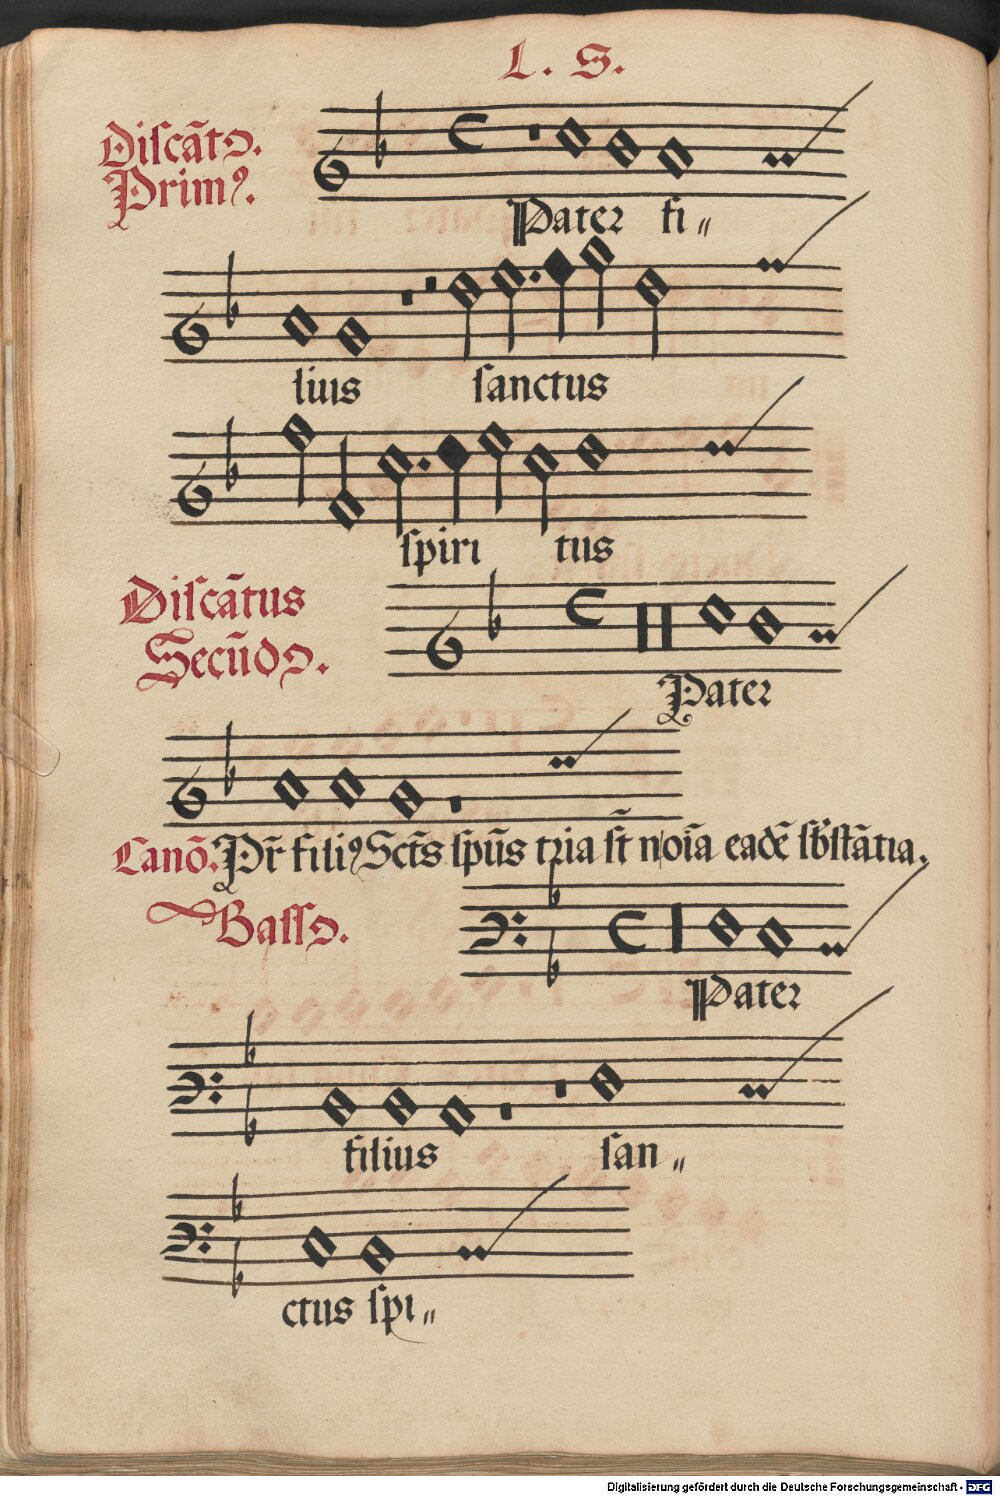 L. S.
Discāto.
Primꝰ.
Pater fi〃
lius sanctus
spiri tus
Discātus
Secūdo.
Pater
Canō. Pr̄ filiꝰ Sct̄s spūs tria st̄ noīa eadē sb̄stātia.
Basso.
Pater
filius san〃
ctus spi〃
Digitalisierung gefördert durch die Deutsche Forschungsgemeinschaft - DFG